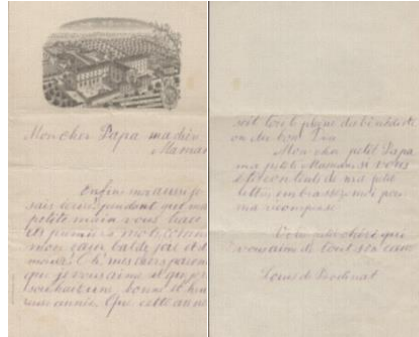 Mon cher Papa ma chère
Maman
Enfin moi aussi je
sais écrire, pendant que ma
petite main vous trace
ces premiers mots comme
mon cœur bat de joie et d
Oh! mes chers parents
que je vous aime et que je
souhaite une bonne et heu
reuse année. Que cette année
soit toute pleine de bénédicti
on du bon
Mon cher petit Papa
ma petite Maman, si vous
êtes contents de ma petite
lettre, embrassez-moi pour
ma récompense.
Votre chéri qui
vous aime de tout son cœur
Louis de